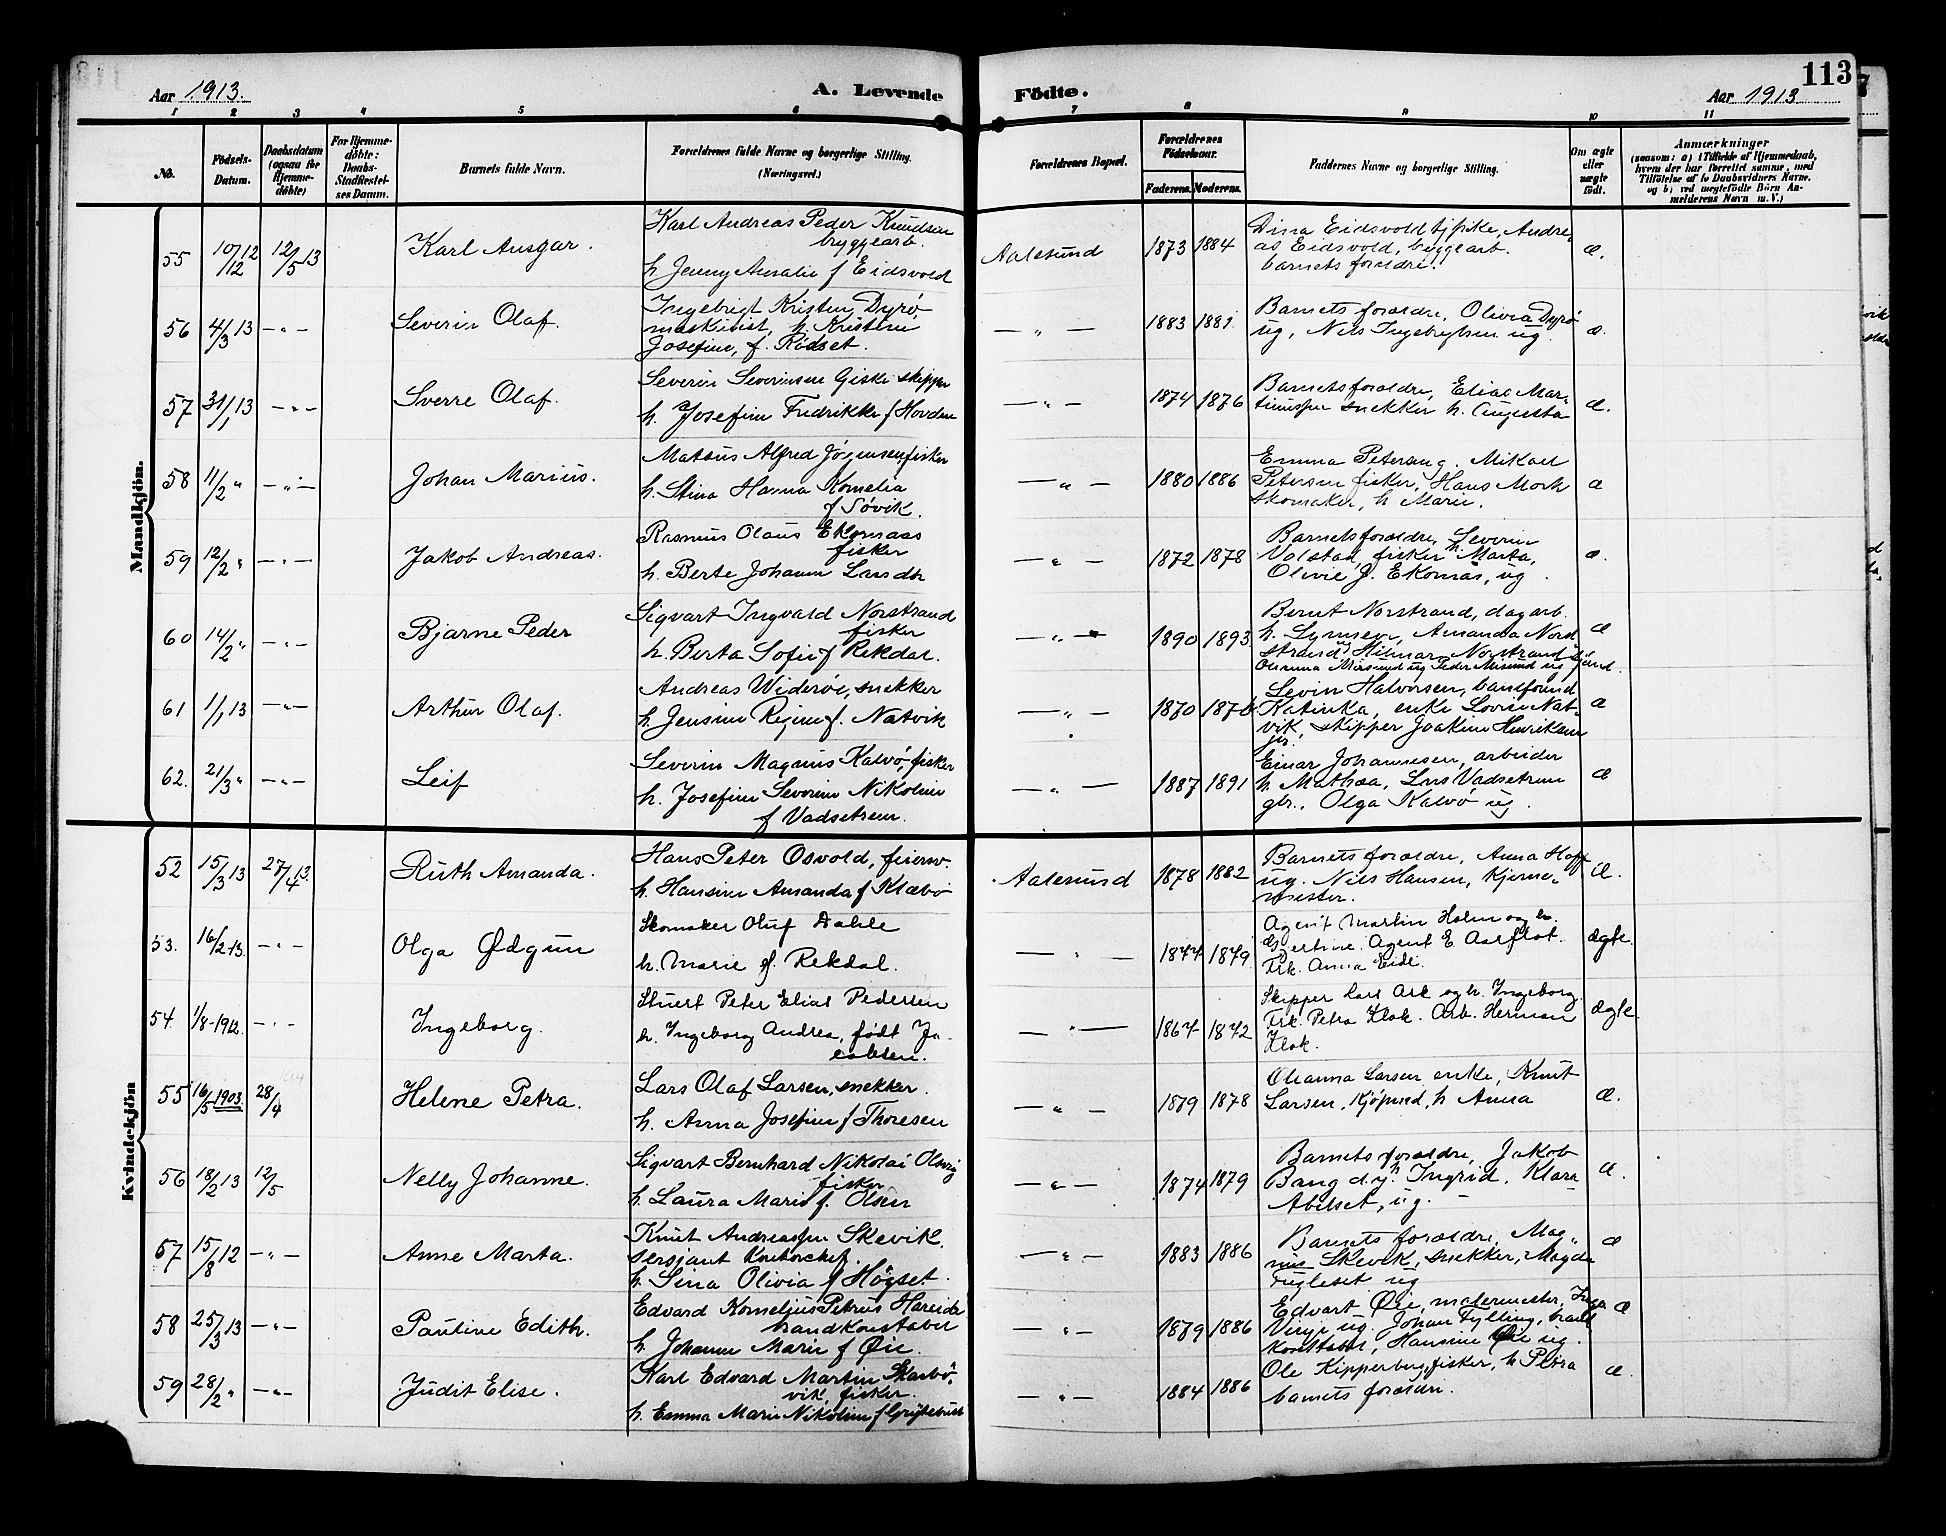 113
Aar 1913.
A. Levende Fødte.
Aar 1913
1 2 3 4 5 6 7 8 9 10 11
No.
Födsels-Datum.
Daabsdatum (ogsaa for Hjemmedöbte)
For Hjemmedöbte: Daabs-Stadfæstelses Datum.
Barnets fulde Navn.
Forældrenes fulde Navne og borgerlige Stilling. (Næringsvei.)
Forældrenes Bopæl.
Forældrenes Födselsaar.
Faderens. Moderens.
Faddernes Navne og borgerlige Stilling.
Om ægte eller uægte födt.
Anmærkninger
(saasom: a) i Tilfælde af Hjemmedaab, hvem der har forrettet samme, med Tilföielse af to Daabsvidners Navne. og b) ved uegtefödte Börn Anmelderens Navn m. V.)
Mandkjön.
55 10/12 12 12/5 13 Karl Ansgar.
Karl Andreas Peder Knudsen
byggearb.
h. Jenny Amalie f Eidsvold
Aalesund 1873 1884
Dina Eidsvold tjpike, Andre-
as Eidsvold, byggearb.
barnets forældre. æ.
56 4/3 13 — " — Severin Olaf.
Ingebrigt Kristen Dyrö-
maskinist, h. Kristine
Josefine, f. Rödset.
— " — 1883 1881.
Barnets forældre, Olivia Dyrö
ug, Nils Ingebrigtsen ug. æ.
57 31/1 13 — " — Sverre Olaf.
Severin Severinsen Giske skipper
h. Josefine Fredrikke f Hovden
— " — 1874 1876
Barnets forældre, Elias Mar-
tinussen snekker h. Augusta æ.
58 11/2 " — " — Johan Marius.
Mateus Alfred Jörgensen fisker
h. Stina Hanna Kornelia
f Sövik.
— " — 1880 1886
Emma Petersen ug. Mikael
Petersen fisker, Hans Mork
skomaker, h Marie. æ
59 12/2 " — " — Jakob Andreas.
Rasmus Olaus Ekornaas
fisker
h. Berte Johanne
— " — 1872 1878
Barnets forældre, Severin
Valstad, fisker h Marta,
Olivie J. Ekornas, ug. æ.
60 14/2 " — " — Bjarne Peder
Sigvart Ingvald Norstrand
fisker
h. Berta Sofie f Rekdal.
— " — 1890 1893.
Bernt Norstrand, dagarb.
h. Lynseve, Amanda Nord-
strand, Hilmar Norstrand
Misund ug Peder Misund ug æ
61 1/1 13 — " — Arthur Olaf.
Andreas Wideröe, snekker
h. Jensine Regine f. Natvik
— " — 1870 1876.
Levin Halvorsen,
Katinka, enke Lovise Nat-
vik, skipper Joakim Henriksen
jr. æ
62. 21/3 " — " — Leif
Severin Magnus Kalvö, fisker
h. Josefine Severine Nikoline
f Vadsetrem.
— " — 1887 1891
Einar Johannesen, arbeider
h. Mathea, Lars Vadsetrem
gbr., Olga Kalvö ug. æ
Kvindekjön
52 15/3 13 27/4 13 Ruth Amanda.
Hans Peter Osvold,
h. Hansine Amanda f Klæbö
Aalesund 1878 1882
Barnets forældre, Anna Hoff
ug. Nils Hansen, Kjerne-
mester. Æ.
53. 16/2 13. — " — Olga Ødgun
Skomaker Oluf Dahle
h. Marie f. Rekdal.
— " — 1877 1879
Agent Martin Holm og h.
Bertine. Agent E Aarflot.
Frk. Anna Eide. ægte.
54. 1/8-1912. — " — Ingeborg.
Stuert Peter Elias Pedersen
h. Ingeborg Andrea, født Ja-
cobsen.
— " — 1867 1872
Skipper Lars Ark og h. Ingeborg.
Frk. Petra Klok. Arb. Herman
Klok. ægte.
55 16/5 1903. 28/4 Helene Petra.
Lars Olaf Larsen, snekker.
h. Anna Josefine f Thoresen
— " — 1879 1878
Oleanna Larsen enke, Knut
Larsen, Kjöpmd, h Anna æ.
56 18/2 13 12/5 Nelly Johanne.
Sigvart Bernhard Nikolai
fisker
h. Laura Marie f. Olsen
— " — 1874 1879
Barnets forældre, Jakob
Bang d.y. h Ingrid, Klara
Abelset, ug. — æ.
57 15/8 12 — " — Anne Marta.
Knut Andreassen Skevik.
sersjant Kontorchef.
h. Sina Olivia f Högset.
— " — 1883 1886
Barnets forældre, Mag-
nus Skevik, snekker, Magda
Fugleset ug æ
58 25/3 13 — " — Pauline Edith.
Edvard Kornelius Petrus Hareide
brandkonstabel
h. Johanne Marie f Øie.
— " — 1879 1886
Edvart Øie, malermester, Inga
ug. Johan Fylling, brand-
konstabel, Hansine Øie ug. æ
59 28/2 " — " — Judit Elise.
Karl Edvard Martin Skarbö-
vik, fisker.
h. Emma Marie Nikoline f Grytebust
— " — 1884 1886
Ole Kipperberg, fisker, h Petra
barnets forældre. æ.